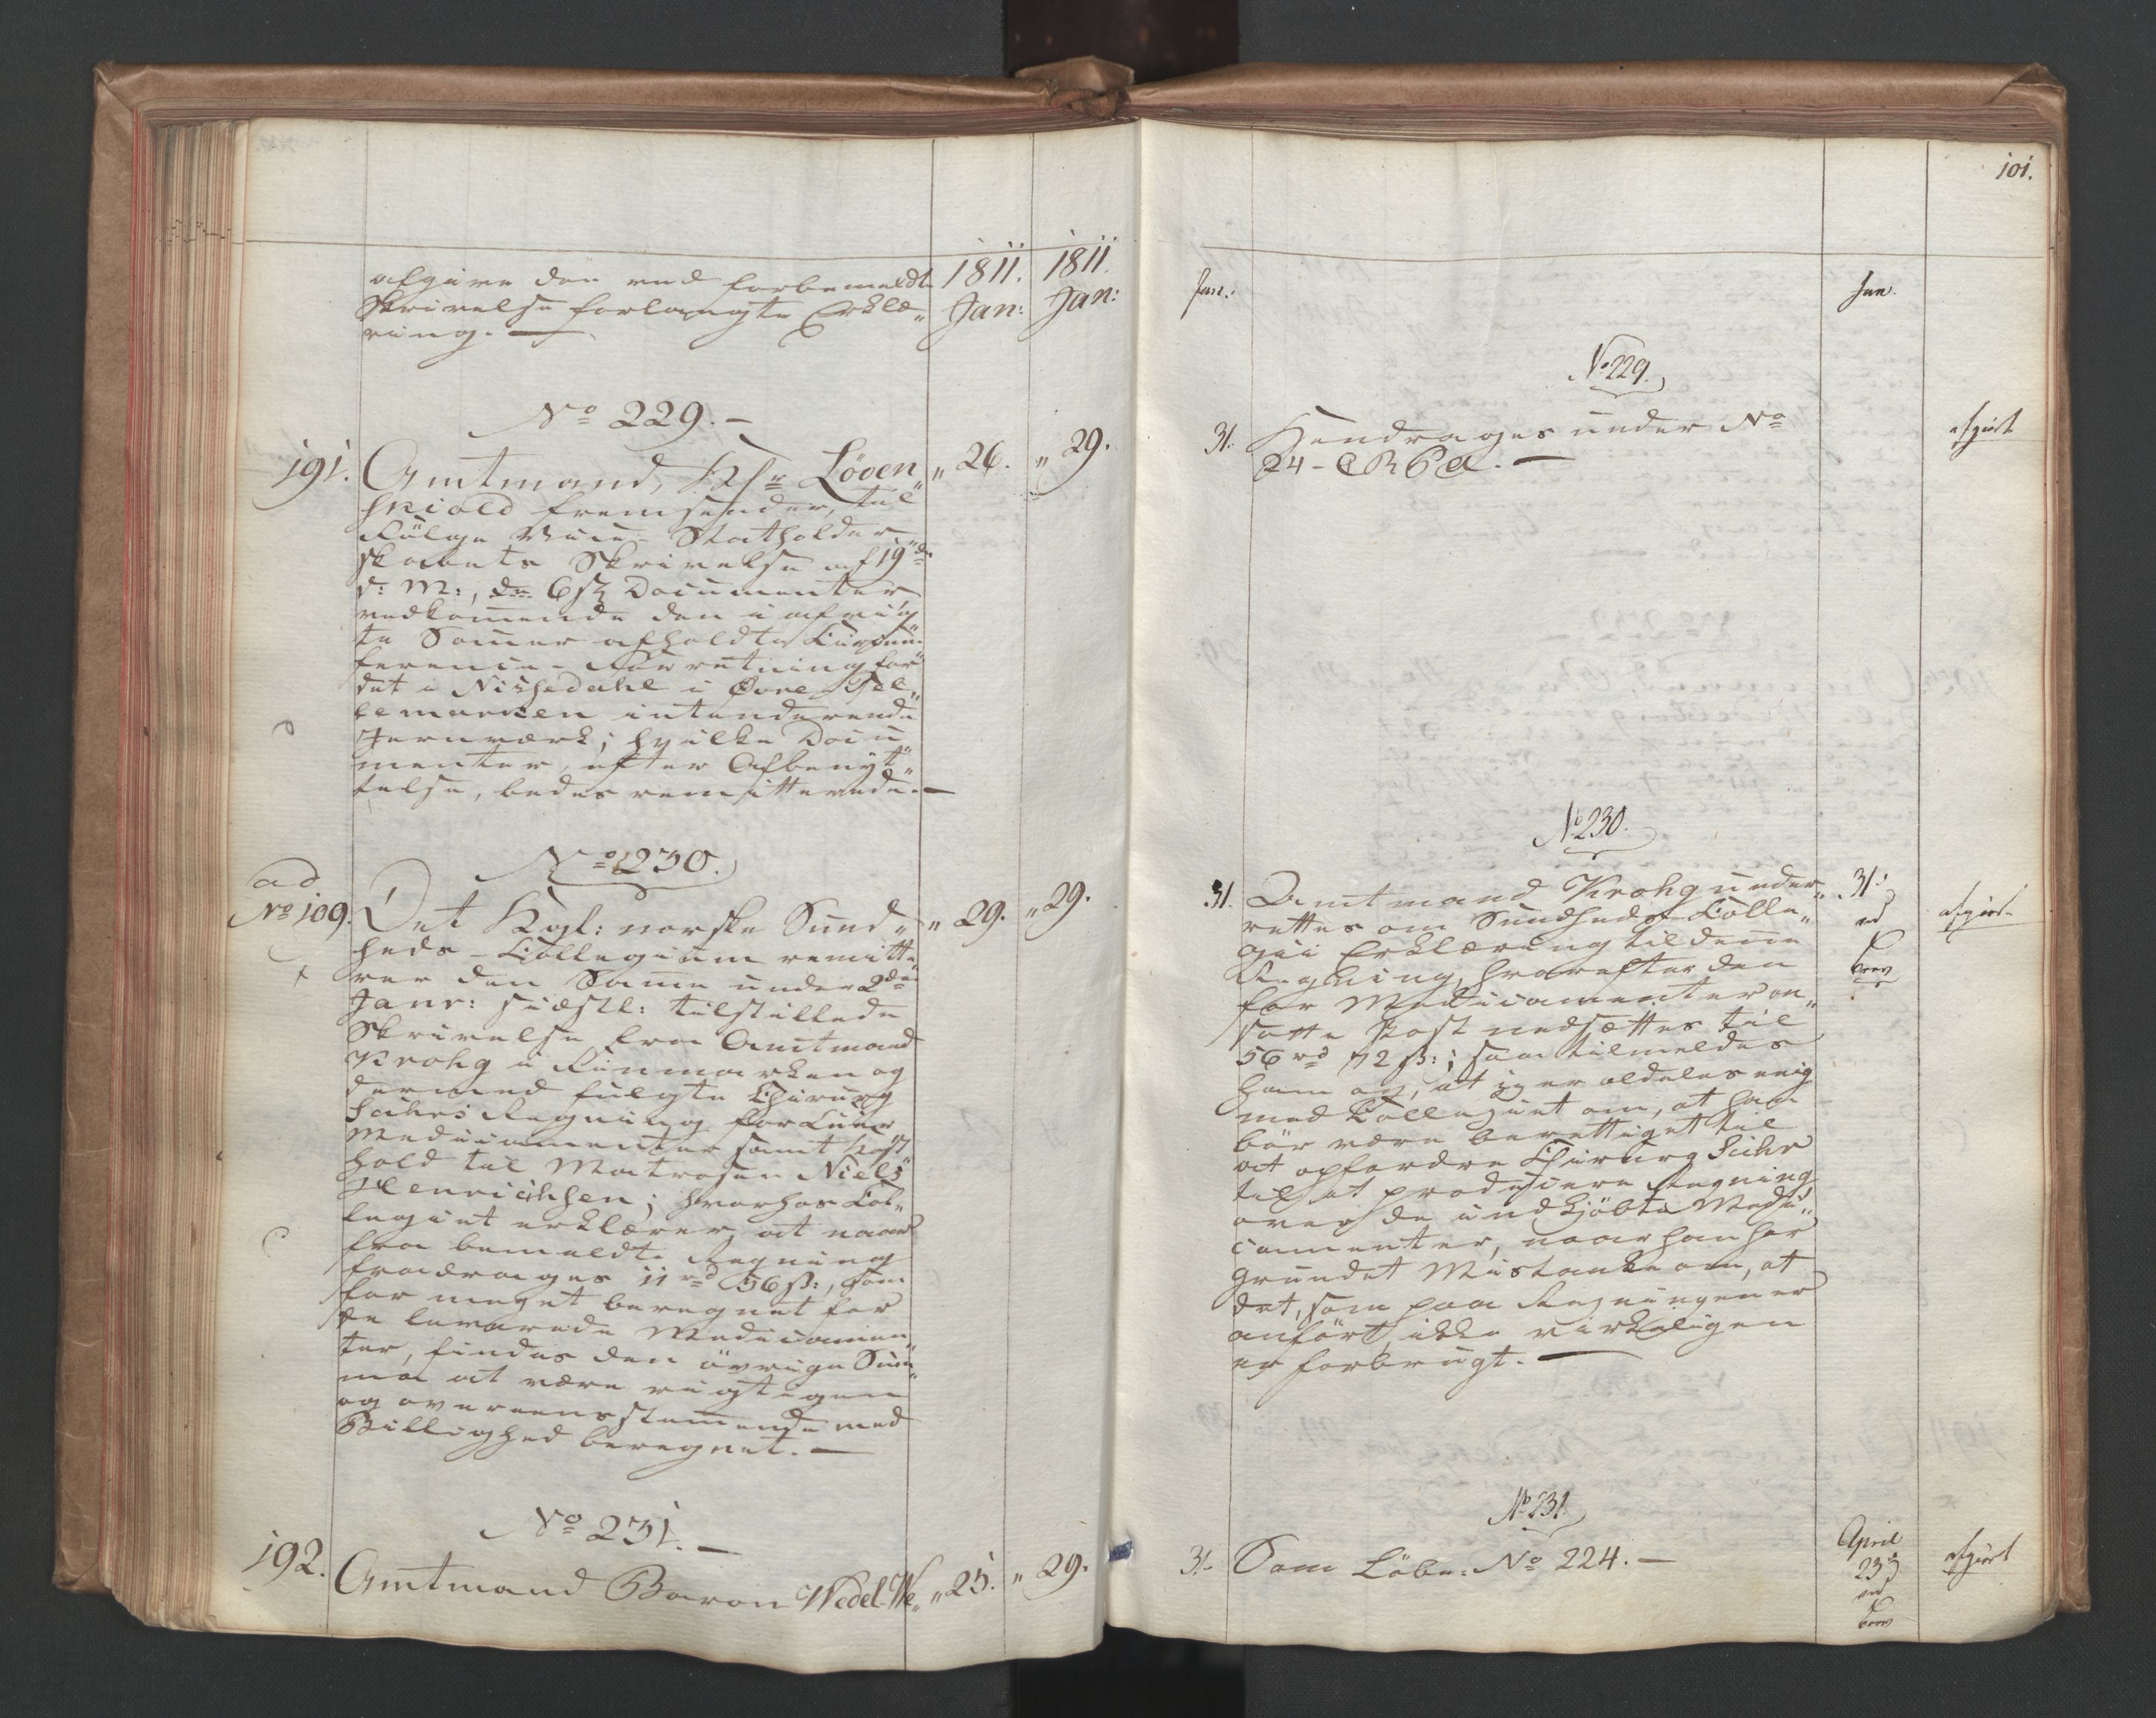 afgive den ved forbemeldte
Skrivelse forlangte Erklæ„
ring. —
1811. 1811.
Jan: Jan:
No 229. —
191. Amtmand, Hr Løven„ „ 26. „ 29.
skiold fremsender, til
Følge Vice-Statholder„
skabets Skrivelse af 19de
d: M:, Documenter
vedkom̅ende den i afvig„
te Som̅er afholdte Circum„
ference-Forretning for
det i Nissedahl i Øvre Tel„
lemarken intenderende
Jernværk; hvilke Docu„
menter, efter Afbenyt„
telse, bedes remitterede. —
No 230.
ad
No 109. Det Kgl: norske Sund„ „ 29. „ 29.
heds-Collegium remitte
rer den Sam̅e under 2den
Janr: sidstl: tilstillede
Skrivelse fra Amtmand
Krohg i Finmarken og
dermed fulgte Chirurg
Suhrs Regning for Cuur
Medicamenter samt Kost
hold til Matrosen Niels
Henrichsen; hvorhos Col„
legiet erklærer, at naar
fra bemeldte Regning
fradrages 11 rd 56 ß:, som
for meget beregnet for
de leverede Medicamen„
ter, findes den øvrige Sum„
ma at være rigtigen
og overeensstem̅ende med
Billighed beregnet. —
No 231. —
192. Amtmand Baron Wedel-We„ „ 25. „ 29.
101.
Jan: Jan.
No 229.
31. Hendrages under No afgiort
24 —
No 230.
31. Amtmand Krohg under„ 31: afgiort
rettes om Sundheds-Colle„ ved
gii Erklæring til den̅e Brev
Regning, hvorefter den
for Medicamenter an„
satte Post nedsættes til
56 rd 72 ß:; saa tilmeldes
ham og, at jeg er aldeles enig
med Collegiet om, at han
bör være berettiget til
at opfordre Chirurg Suhr
til at producere Regning
over de indkjöbte Medi„
camenter, naar han har
grundet Mistanke om, at
det, som paa Regningen er
anfört, ikke virkeligen
er forbrugt. —
No 231.
31. Som Löbe: No 224. — April afgiort
23
ved
Brev